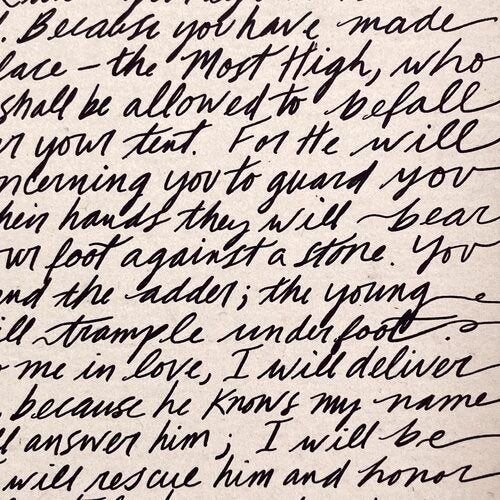 . Because you have made
lace - the Most High, who
shall be allowed to befall
r your tent. For He will
ncerning you to guard you
heir hands they will bear
ur foot against a stone. You
nd the adder; the young
ill trample underfoot.
me in love, I will deliver
, because he knows my name
ll answer him; I will be
will rescue him and honor